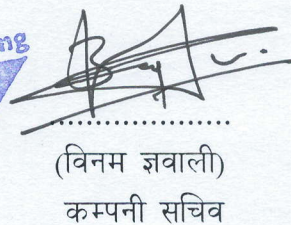 ng
(विनम ज्ञवाली)
कम्पनी सचिव